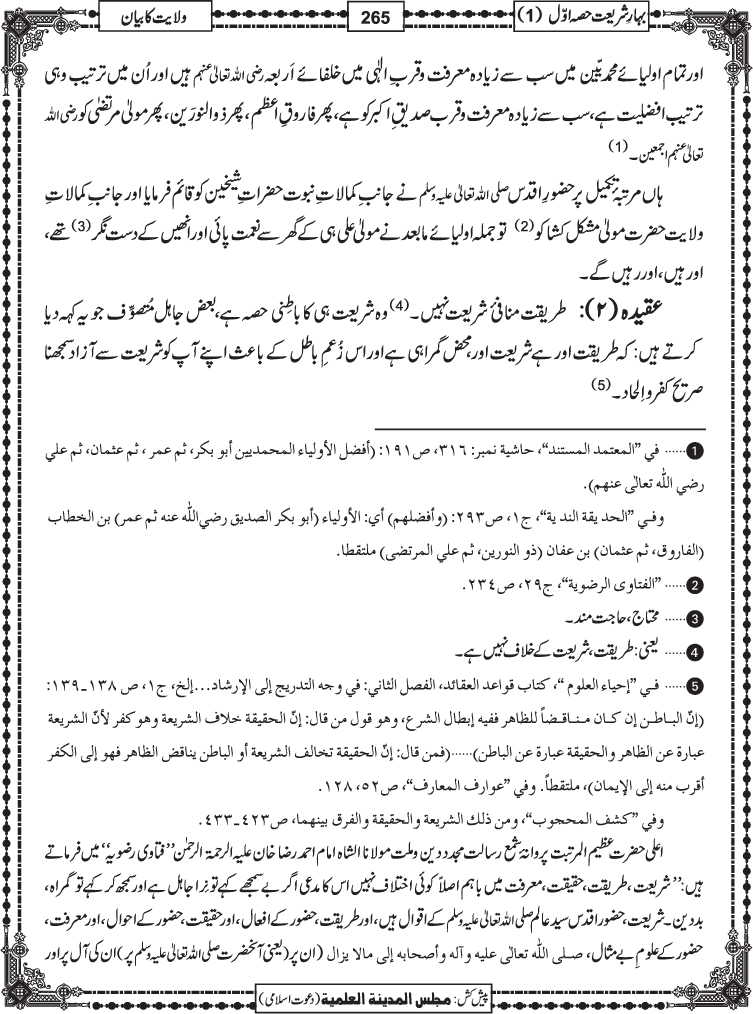 بہار شریعت حصہ اوّل (1)
265
ولایت کا بیان
اور تمام اولیائے محمدیّین میں سب سے زیادہ معرفت وقربِ الٰہی میں خلفائے اَربعہ رضی اللہ تعالیٰ عنہم ہیں اور اُن میں ترتیب وہی
ترتیب افضلیت ہے، سب سے زیادہ معرفت وقرب صدیقِ اکبر کو ہے، پھر فاروقِ اعظم، پھر ذو النورَین، پھر مولیٰ مرتضیٰ کو رضی اللہ
تعالیٰ عنہم اجمعین۔ (1)
ہاں مرتبۂ تکمیل پر حضورِ اقدس صلی اللہ تعالیٰ علیہ وسلم نے جانبِ کمالاتِ نبوت حضراتِ شیخین کو قائم فرمایا اور جانبِ کمالاتِ
ولایت حضرت مولیٰ مشکل کشا کو (2) تو جملہ اولیائے مابعد نے مولیٰ علی ہی کے گھر سے نعمت پائی اور انھیں کے دست نگر (3) تھے،
اور ہیں، اور رہیں گے۔
عقیدہ (۲): طریقت منافیٔ شریعت نہیں۔ (4) وہ شریعت ہی کا باطنی حصہ ہے، بعض جاہل مُتصوِّف جو یہ کہہ دیا
کرتے ہیں: کہ طریقت اور ہے شریعت اور، محض گمراہی ہے اور اس زُعمِ باطل کے باعث اپنے آپ کو شریعت سے آزاد سمجھنا
صریح کفر و الحاد۔ (5)
1...... في ”المعتمد المستند“، حاشية نمبر: ٣١٦، ص١٩١: (أفضل الأولياء المحمديين أبو بكر، ثم عمر، ثم عثمان، ثم علي
رضي الله تعالى عنهم).
وفي ”الحديقة الندية“، ج١، ص٢٩٣: (وأفضلهم) أي: الأولياء (أبو بكر الصديق رضي الله عنه ثم عمر) بن الخطاب
(الفاروق، ثم عثمان) بن عفان (ذو النورين، ثم علي المرتضى) ملتقطا.
2...... ”الفتاوى الرضوية“، ج٢٩، ص٢٣٤.
3...... محتاج، حاجت مند۔
4...... یعنی: طریقت، شریعت کے خلاف نہیں ہے۔
5...... في ”إحياء العلوم“، كتاب قواعد العقائد، الفصل الثاني: في وجه التدريج إلى الإرشاد...إلخ، ج١، ص ١٣٨-١٣٩:
(إنّ الباطن إن كان مناقضاً للظاهر ففيه إبطال الشرع، وهو قول من قال: إنّ الحقيقة خلاف الشريعة وهو كفر لأنّ الشريعة
عبارة عن الظاهر والحقيقة عبارة عن الباطن)......(فمن قال: إنّ الحقيقة تخالف الشريعة أو الباطن يناقض الظاهر فهو إلى الكفر
أقرب منه إلى الإيمان)، ملتقطاً. وفي ”عوارف المعارف“، ص٥٢، ١٢٨.
وفي ”كشف المحجوب“، ومن ذلك الشريعة والحقيقة والفرق بينهما، ص٤٢٣-٤٣٣.
اعلی حضرت عظیم المرتبت پروانۂ شمع رسالت مجدد دین وملت مولانا الشاہ امام احمد رضا خان علیہ الرحمۃ الرحمٰن ”فتاوی رضویہ“ میں فرماتے
ہیں: ”شریعت، طریقت، حقیقت، معرفت میں باہم اصلاً کوئی اختلاف نہیں اس کا مدعی اگر بے سمجھے کہے تو نِرا جاہل ہے اور سمجھ کر کہے تو گمراہ،
بددین۔ شریعت، حضور اقدس سید عالم صلی اللہ تعالیٰ علیہ وسلم کے اقوال ہیں، اور طریقت، حضور کے افعال، اور حقیقت، حضور کے احوال، اور معرفت،
حضور کے علومِ بے مثال، صلى الله تعالى عليه وآله وأصحابه إلى مالا يزال (ان پر (یعنی آنحضرت صلی اللہ تعالیٰ علیہ وسلم پر) ان کی آل پر اور
پیش کش: مجلس المدينة العلمية (دعوت اسلامی)